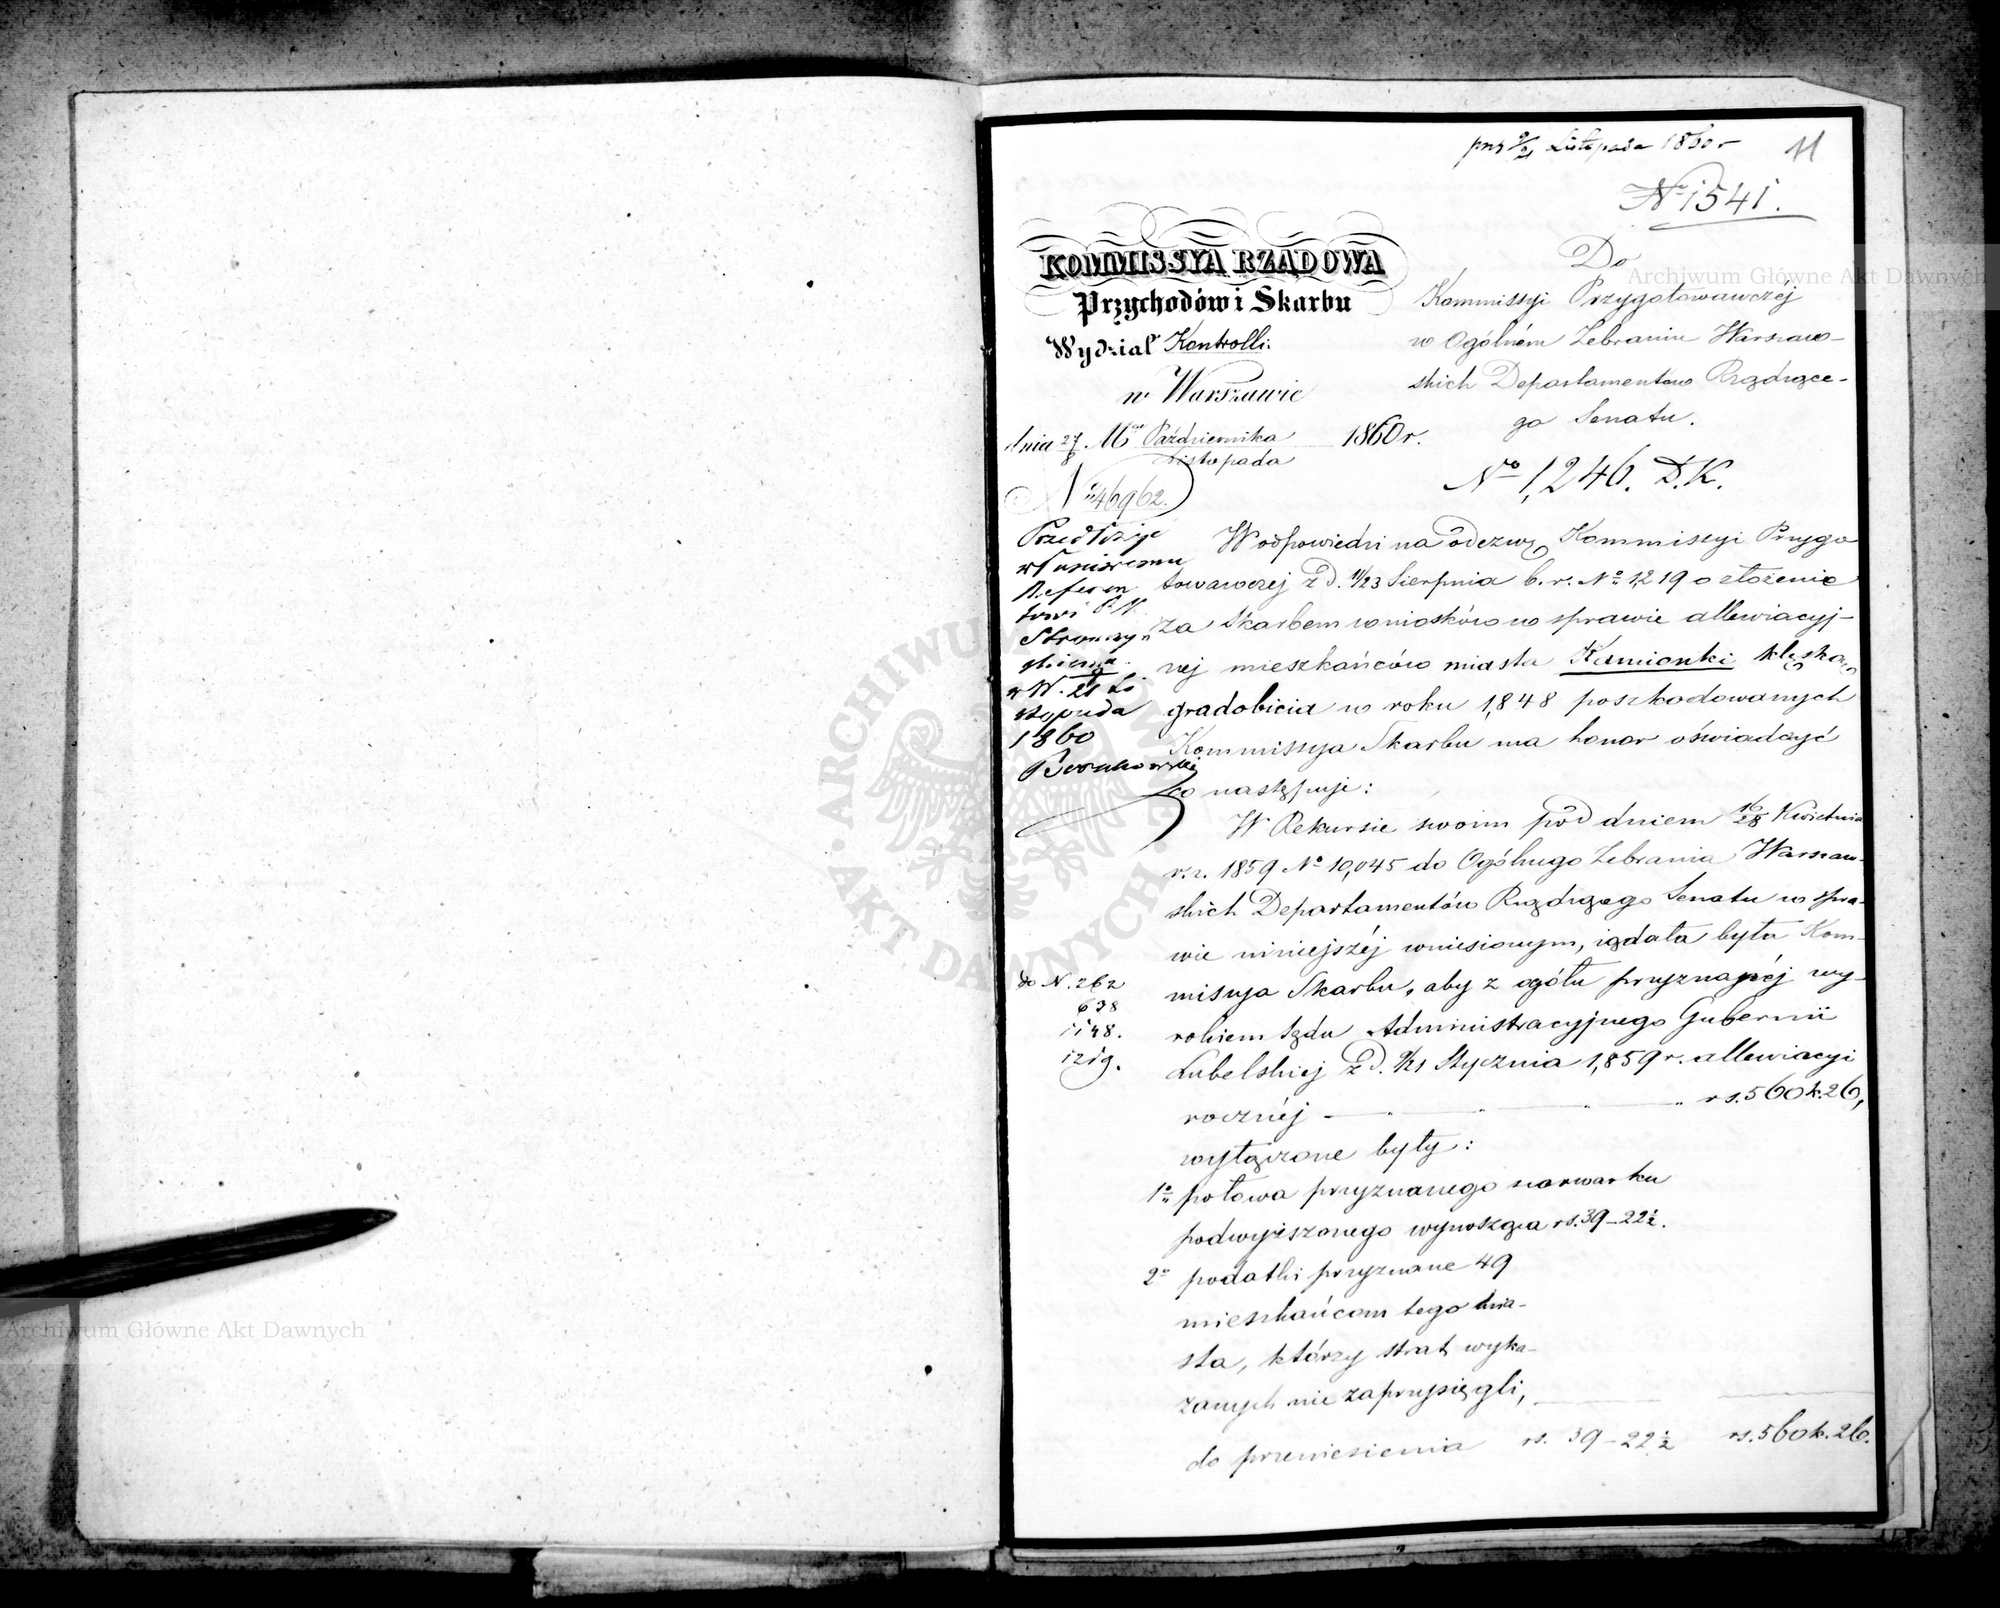 prz 9/21 Listopada 1860 r
11
No 1541.
KOMMISSYA RZĄDOWA
Przychodów i Skarbu
Wydział Kontrolli.
w Warszawie
dnia 27/8 Mca Października 1860 r.
Listopada
No 46962.
Do
Kommissyi Przygotowawczéj
w Ogólném Zebraniu Warszaw-
skich Departamentów Rządzące-
go Senatu.
No 1,246. D.K.
Przedłożyć
właściwemu
Referen
towi
w W. 9/21 Li
stopada
1860
do N. 262
638
1148.
1219.
W odpowiedzi na odezwę Kommissyi Przygo
towawczej z d. 11/23 Sierpnia b.r. No 1,219 o złożenie
za Skarbem wniosków w sprawie allewiacyj-
nej mieszkańców miasta Kamionki klęską
gradobicia w roku 1,848 poszkodowanych
Kommissya Skarbu ma honor oświadczyć
co następuje:
W Rekursie swoim pod dniem 16/28 Kwietnia
r.z. 1859 No 10,045 do Ogólnego Zebrania Warszaw-
skich Departamentów Rządzącego Senatu w spra-
wie niniejszéj wniesionym, żądała była Kom-
missya Skarbu, aby z ogółu przyznanéj wy-
rokiem Sądu Administracyjnego Gubernii
Lubelskiej z d. 9/21 Stycznia 1,859 r. allewiacyi
rocznéj rs. 560 k. 26,
wyłączone były:
1o połowa przyznanego szarwarku
podwyższonego wynosząca rs. 39-22½.
2o podatki przyznane 49
mieszkańcom tego mia-
sta, którzy strat wyka-
zanych nie zaprzysięgli,
do przeniesienia rs. 39-22½ rs. 560 k. 26.
Archiwum Główne Akt Dawnych
Archiwum Główne Akt Dawnych
ARCHIWUM GŁÓWNE AKT DAWNYCH